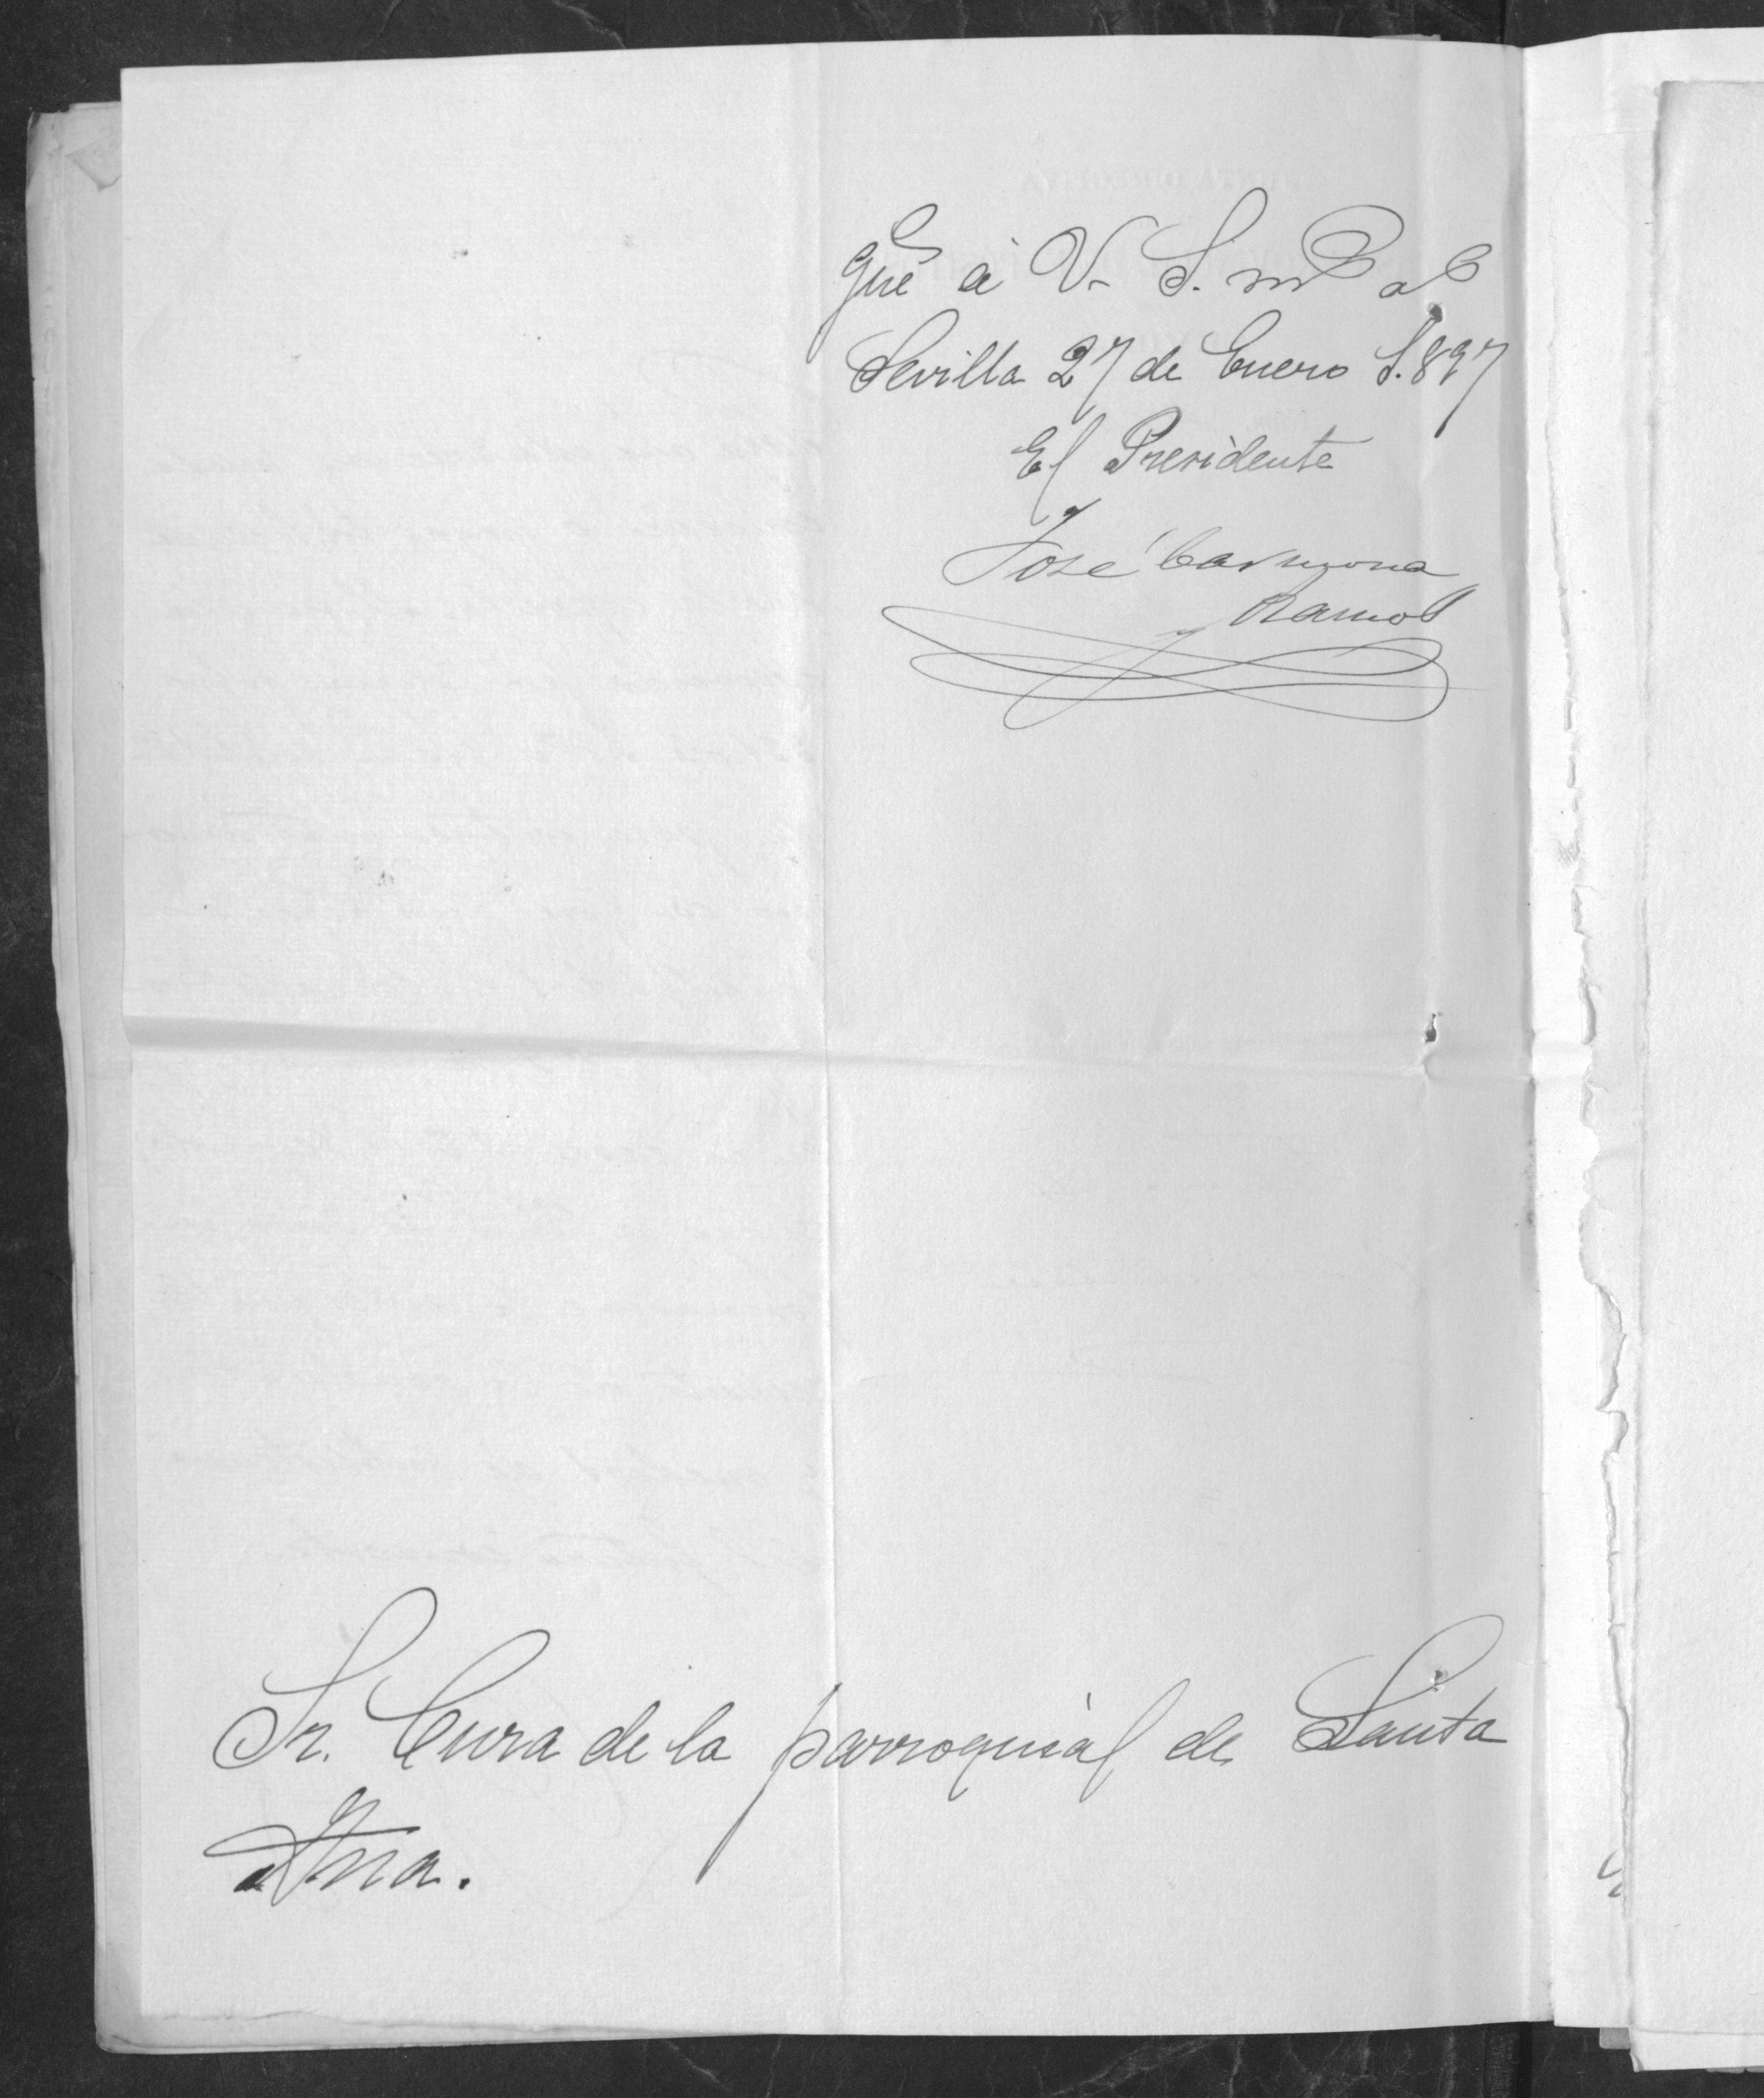 gue á V. S. ms as
Sevilla 27 de Enero 1.897
El Presidente
José Carmona
y Ramos
Sr. Cura de la parroquial de Santa
Ana.